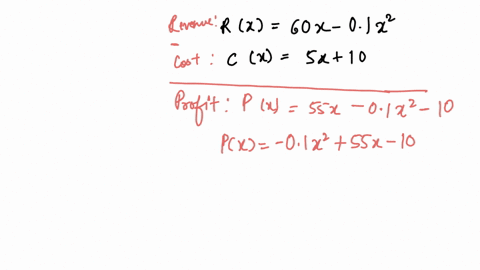 Revenue: R(x) = 60x - 0.1x²
Cost: C(x) = 5x + 10
Profit: P(x) = 55x - 0.1x² - 10
P(x) = -0.1x² + 55x - 10